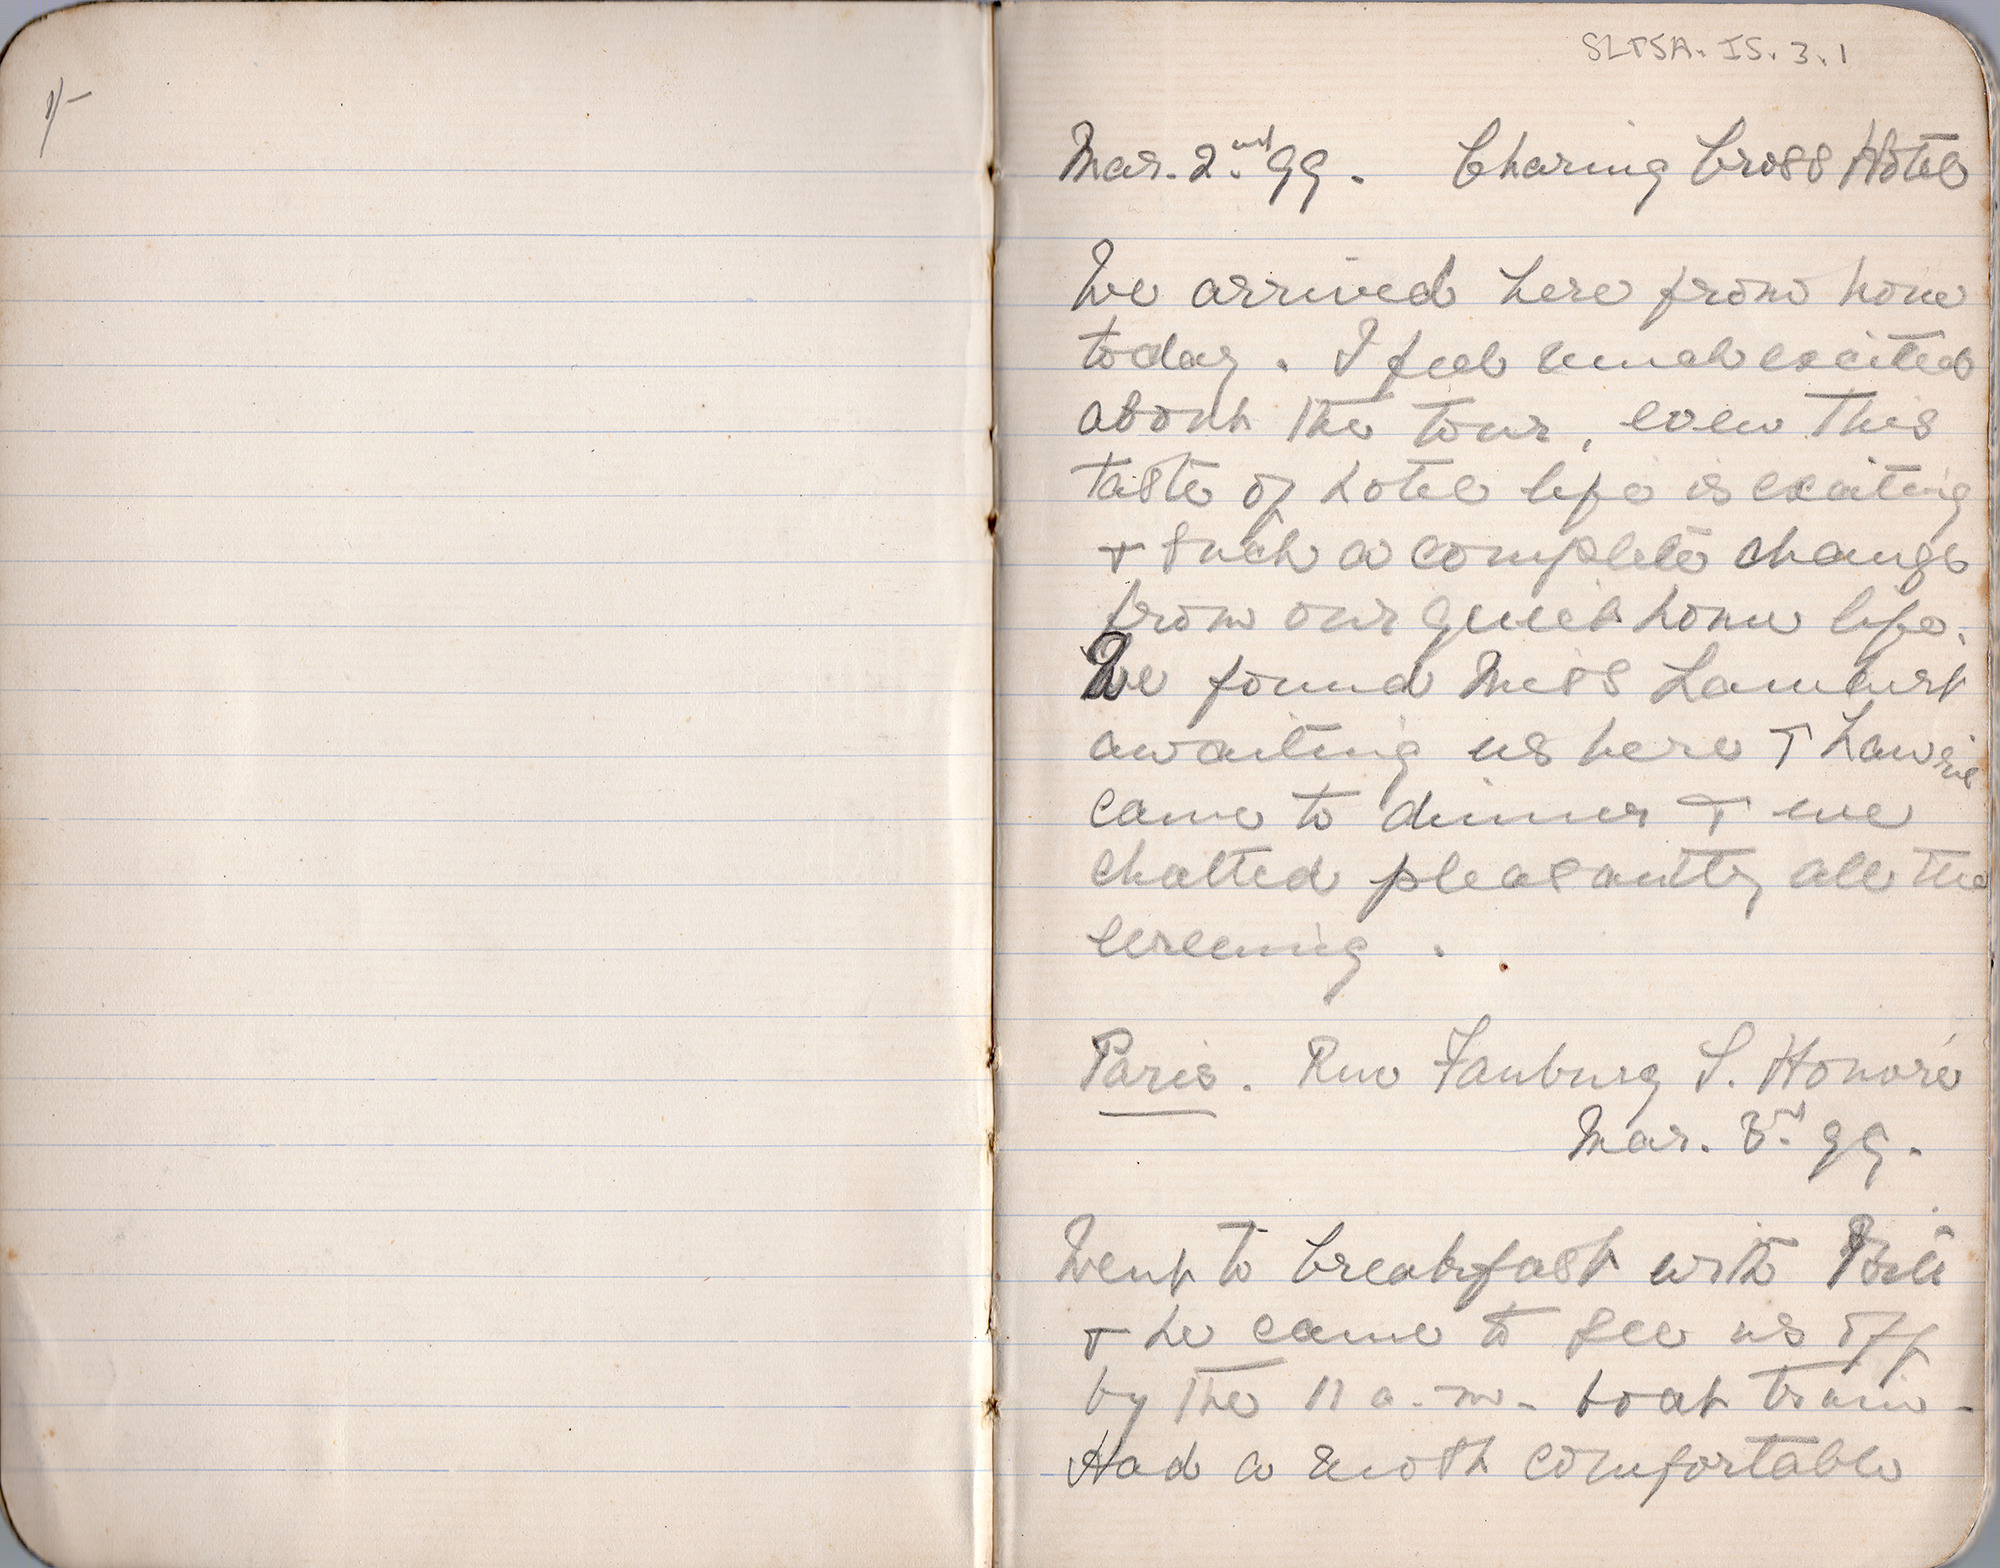 1/-
SLTSA. IS. 3. 1
Mar. 2.nd 99. Charing Cross Hotel
We arrived here from home
today. I feel much excited
about the tour, even this
taste of hotel life is exciting
+ such a complete change
from our quiet home life.
We found Miss Lambert
awaiting us here + Lawrie
came to dinner + we
chatted pleasantly all the
evening.
Paris. Rue Fauburg S. Honoré
Mar. 3.rd 99.
Went to breakfast with
+ he came to see us off
by the 11 a.m. boat train -
Had a most comfortable